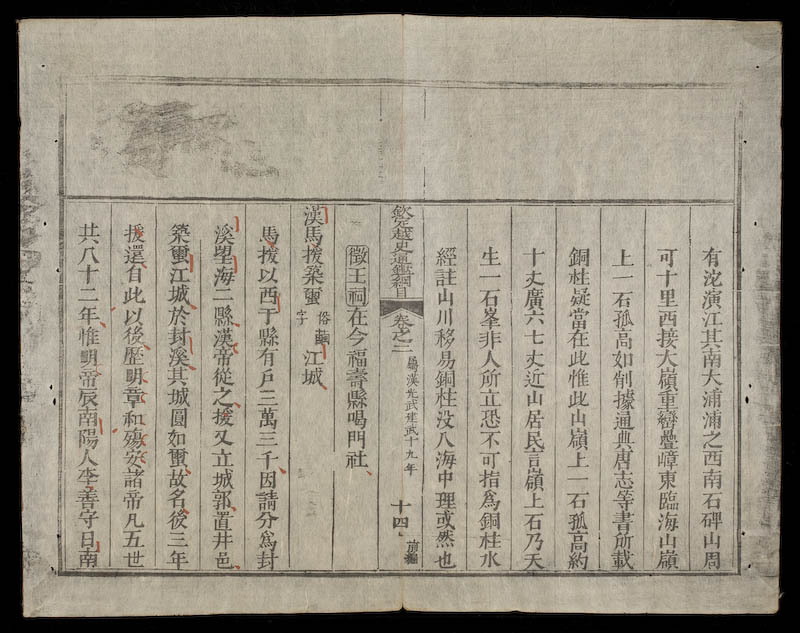 有沱演江其南大浦浦之西南石碑山周
可十里西接大嶺重巒疊嶂東臨海山嶺
上一石孤高如削據通典唐志等書所載
銅柱疑當在此惟此山嶺上一石孤高約
十丈廣六七丈近山居民言嶺上石乃天
生一石峯非人所立恐不可指為銅柱水
經註山川移易銅柱没入海中理或然也
欽定越史通鑑綱目 卷之二 屬漢光武建武十九年 十四 前編
徵王祠在今福壽縣喝門社
漢馬援築𤫩俗繭字江城
馬援以西于縣有戶三萬三千因請分為封
溪望海二縣漢帝從之援又立城郭置井邑
築𤫩江城於封溪其城圓如𤫩故名後三年
援還自此以後歷明章和殤安諸帝凡五世
共八十二年惟明帝辰南陽人李善守日南